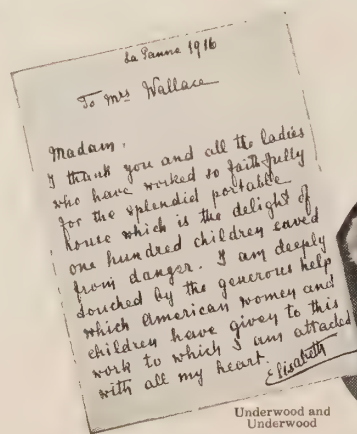 La Panne 1916
To Mrs Wallace
Madam,
I thank you and all the ladies
who have worked so faithfully
for the splendid portable
house which is the delight of
one hundred children saved
from danger. I am deeply
touched by the generous help
which American women and
children have given to this
work to which I am attached
with all my heart.
Elisabeth
Underwood and
Underwood